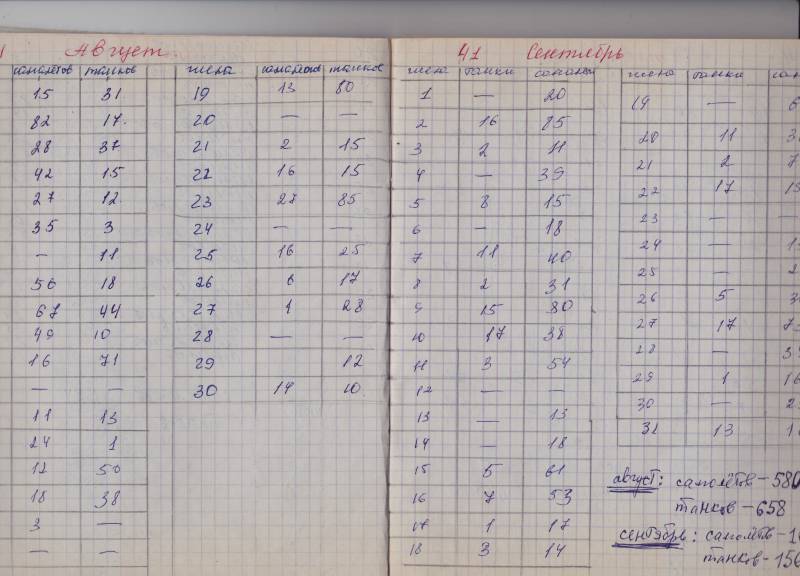 Август.
самолётов танков
15 31
82 17.
28 37
42 15
27 12
35 3
— 11
56 18
67 44
49 10
16 71
— —
11 13
24 1
12 50
18 38
3 —
— —
числа самолётов танков
19 13 80
20 — —
21 2 15
22 16 15
23 27 85
24 — —
25 16 25
26 6 17
27 1 28
28 — —
29 12
30 14 10
41 Сентябрь
числа танки самолёты
1 — 20
2 16 85
3 2 11
4 — 39
5 8 15
6 — 18
7 11 40
8 2 31
9 15 80
10 17 38
11 3 54
12 — —
13 — 13
14 — 18
15 5 61
16 7 53
17 1 17
18 3 14
числа танки
19 —
20 11
21 2
22 17
23 — —
24 —
25 —
26 5
27 17
28 —
29 1
30 —
31 13
август: самолётов – 580
танков – 658
сентябрь: самолётов –
танков – 156